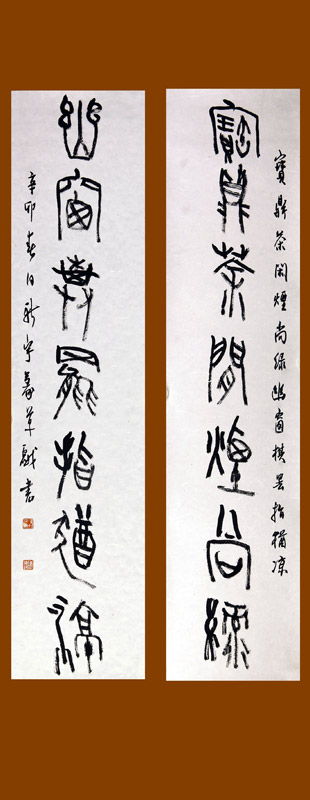 寶鼎茶閑煙尚綠幽窗棋罢指猶凉
寶鼎茶閒煙尚綠
幽窗棋罷指猶涼
辛卯春日新宇草戲書